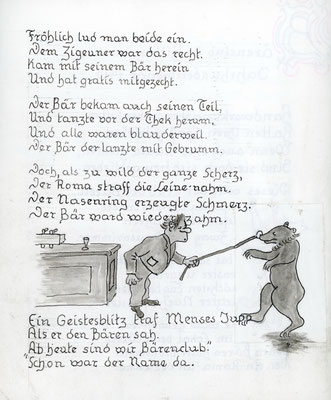 Fröhlich lud man beide ein.
Dem Zigeuner war das recht.
Kam mit seinem Bär herein
Und hat gratis mitgezecht.
Der Bär bekam auch seinen Teil,
Und tanzte vor der Thek herum,
Und alle waren blau derweil.
Der Bär der tanzte mit Gebrumm.
Doch, als zu wild der ganze Scherz,
Der Roma straff die Leine nahm.
Der Nasenring erzeugte Schmerz.
Der Bär ward wieder zahm.
Ein Geistesblitz traf Menses Jupp
Als er den Bären sah.
"Ab heute sind wir Bärenclub."
Schon war der Name da.